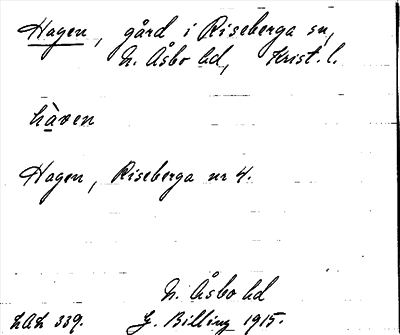 Hagen, gård i Riseberga sn,
N. Åsbo hd, Krist. l.
hàven
Hagen, Riseberga nr 4.
N. Åsbo hd
LAL 339. G. Billing 1915.